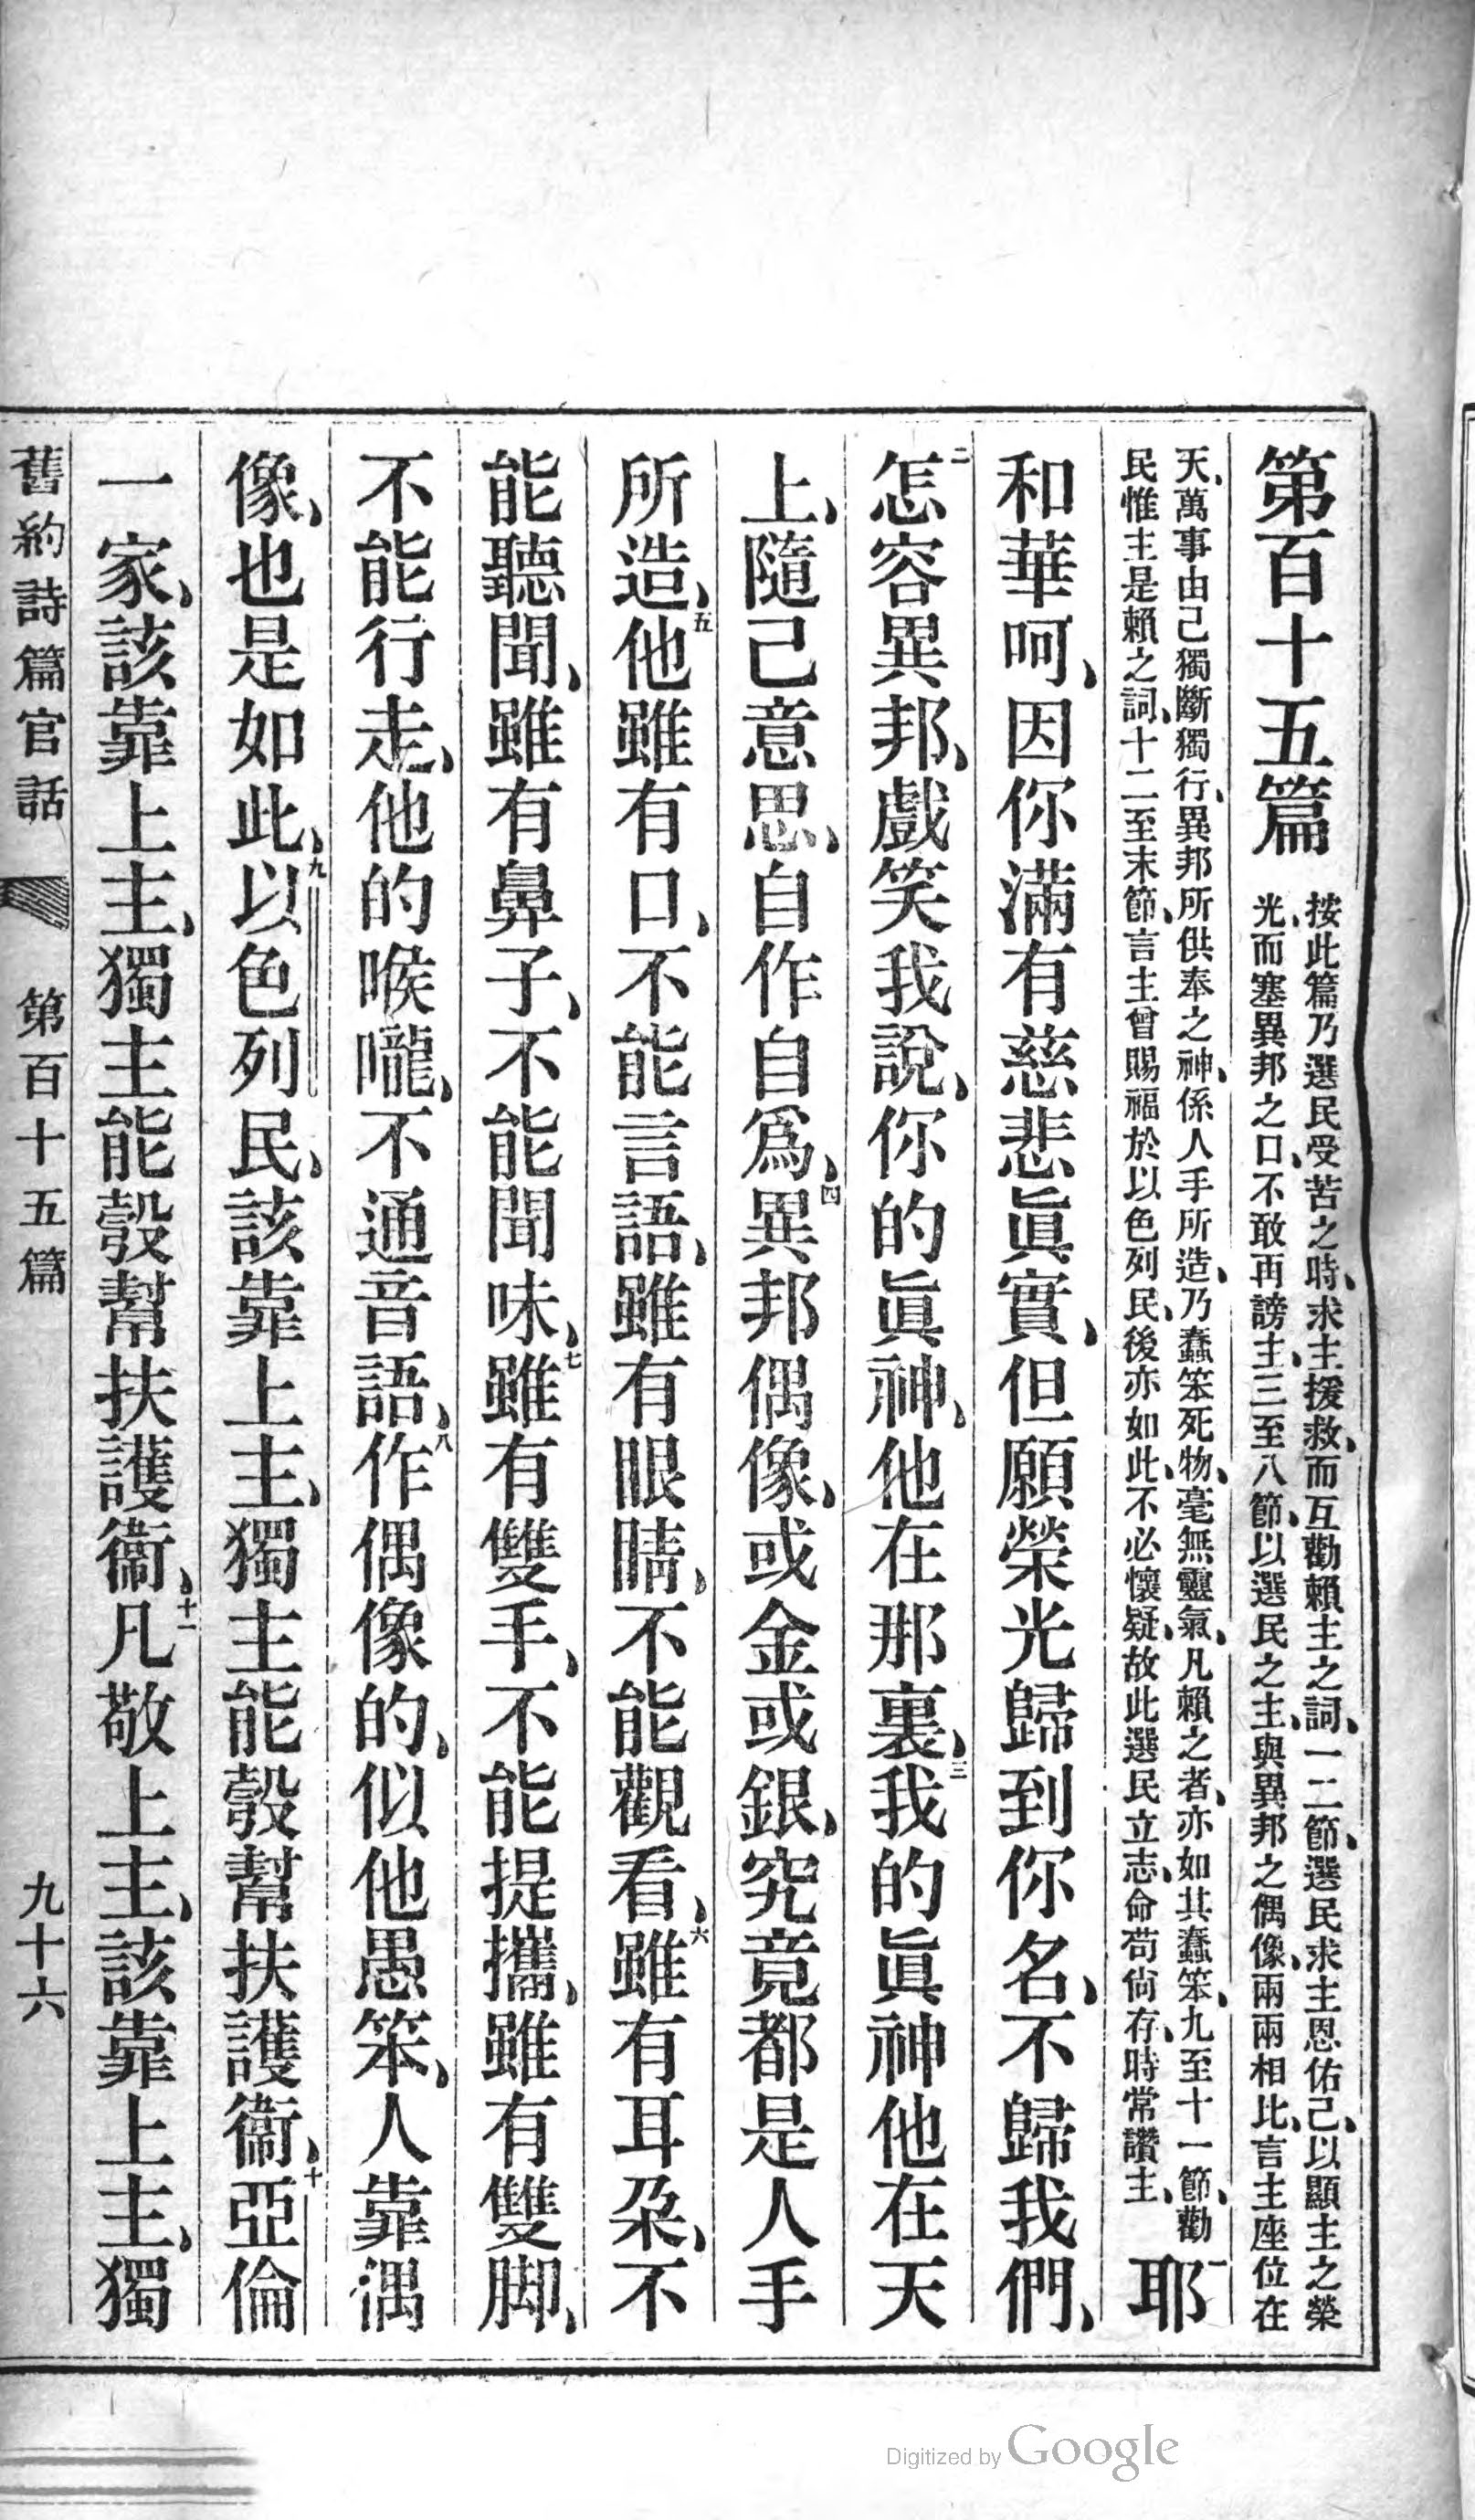 第百十五篇
按此篇乃選民受苦之時、求主援救、而互勸賴主之詞、一二節、選民求主恩佑己、以顯主之榮
光、而塞異邦之口、不敢再謗主、三至八節、以選民之主、與異邦之偶像、兩兩相比、言主座位在
天、萬事由己獨斷獨行、異邦所供奉之神、係人手所造、乃蠢笨死物、毫無靈氣、凡賴之者、亦如其蠢笨、九至十一節、勸
民惟主是賴之詞、十二至末節、言主曾賜福於以色列民、後亦如此、不必懷疑、故此選民立志、命苟尙存、時常讚主、
一耶
和華呵、因你滿有慈悲眞實、但願榮光歸到你名、不歸我們、
二怎容異邦、戲笑我說、你的眞神、他在那裏、三我的眞神他在天
上、隨己意思、自作自爲、四異邦偶像、或金或銀、究竟都是人手
所造、五他雖有口、不能言語、雖有眼睛、不能觀看、六雖有耳朶、不
能聽聞、雖有鼻子、不能聞味、七雖有雙手、不能提攜、雖有雙脚、
不能行走、他的喉嚨、不通音語、八作偶像的、似他愚笨、人靠偶
像、也是如此、九以色列民、該靠上主、獨主能彀幫扶護衞、十亞倫
一家、該靠上主、獨主能彀幫扶護衞、十一凡敬上主、該靠上主、獨
舊約詩篇官話 第百十五篇 九十六
Digitized by Google